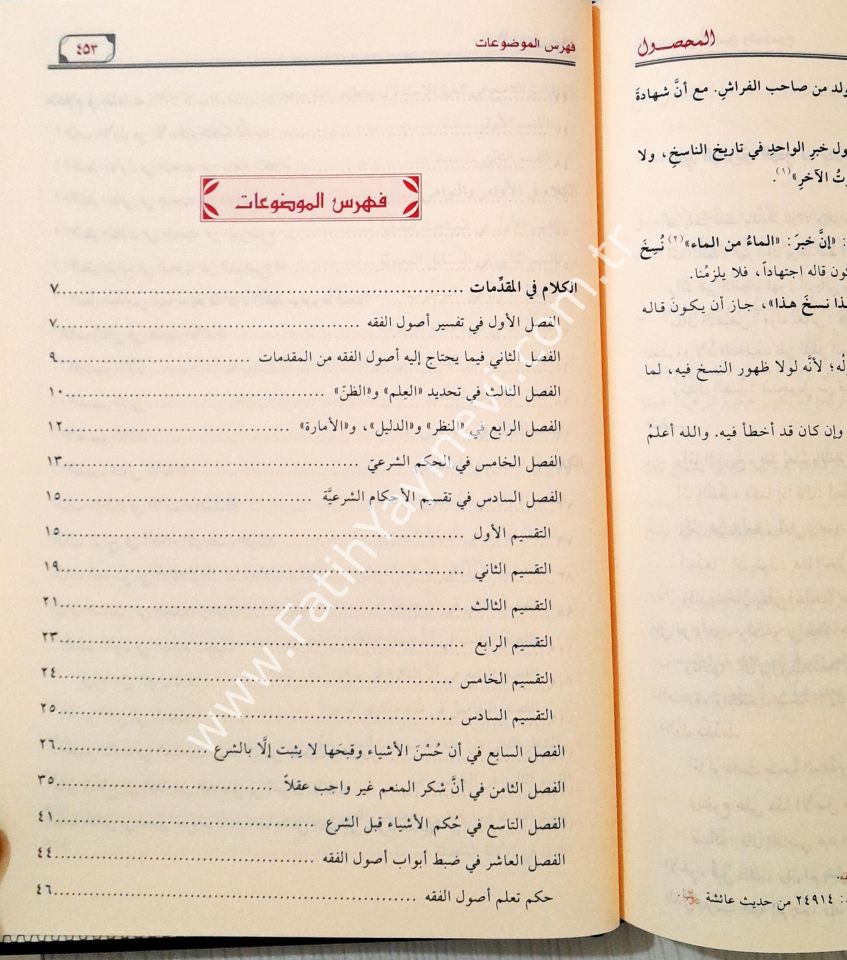 المحصول
ولد من صاحب الفراش. مع أنَّ شهادةَ
ول خبرِ الواحدِ في تاريخ الناسخِ، ولا
وتُ الآخرِ»(١).
: «إنَّ خبرَ: «الماءُ من الماء»(٢) نُسِخَ
كون قاله اجتهاداً، فلا يلزمُنا.
ذا نسخَ هذا»، جاز أن يكونَ قاله
لُه؛ لأنَّه لولا ظهور النسخ فيه، لما
وإن كان قد أخطأ فيه. والله أعلمُ
: ٢٤٩١٤ من حديث عائشة
فهرس الموضوعات
٤٥٣
فهرس الموضوعات
الكلام في المقدِّمات ........ ٧
الفصل الأول في تفسير أصول الفقه ........ ٧
الفصل الثاني فيما يحتاج إليه أصول الفقه من المقدمات ........ ٩
الفصل الثالث في تحديد «العِلم» و«الظنّ» ........ ١٠
الفصل الرابع في «النظر» و«الدليل»، و«الأمارة» ........ ١٢
الفصل الخامس في الحكم الشرعيّ ........ ١٣
الفصل السادس في تقسيم الأحكام الشرعيَّة ........ ١٥
التقسيم الأول ........ ١٥
التقسيم الثاني ........ ١٩
التقسيم الثالث ........ ٢١
التقسيم الرابع ........ ٢٣
التقسيم الخامس ........ ٢٤
التقسيم السادس ........ ٢٥
الفصل السابع في أن حُسْنَ الأشياء وقبحَها لا يثبت إلَّا بالشرع ........ ٢٦
الفصل الثامن في أنَّ شكر المنعم غير واجب عقلاً ........ ٣٥
الفصل التاسع في حُكم الأشياء قبل الشرع ........ ٤١
الفصل العاشر في ضبط أبواب أصول الفقه ........ ٤٤
حكم تعلم أصول الفقه ........ ٤٦
www.FatihYayinevi.com.tr